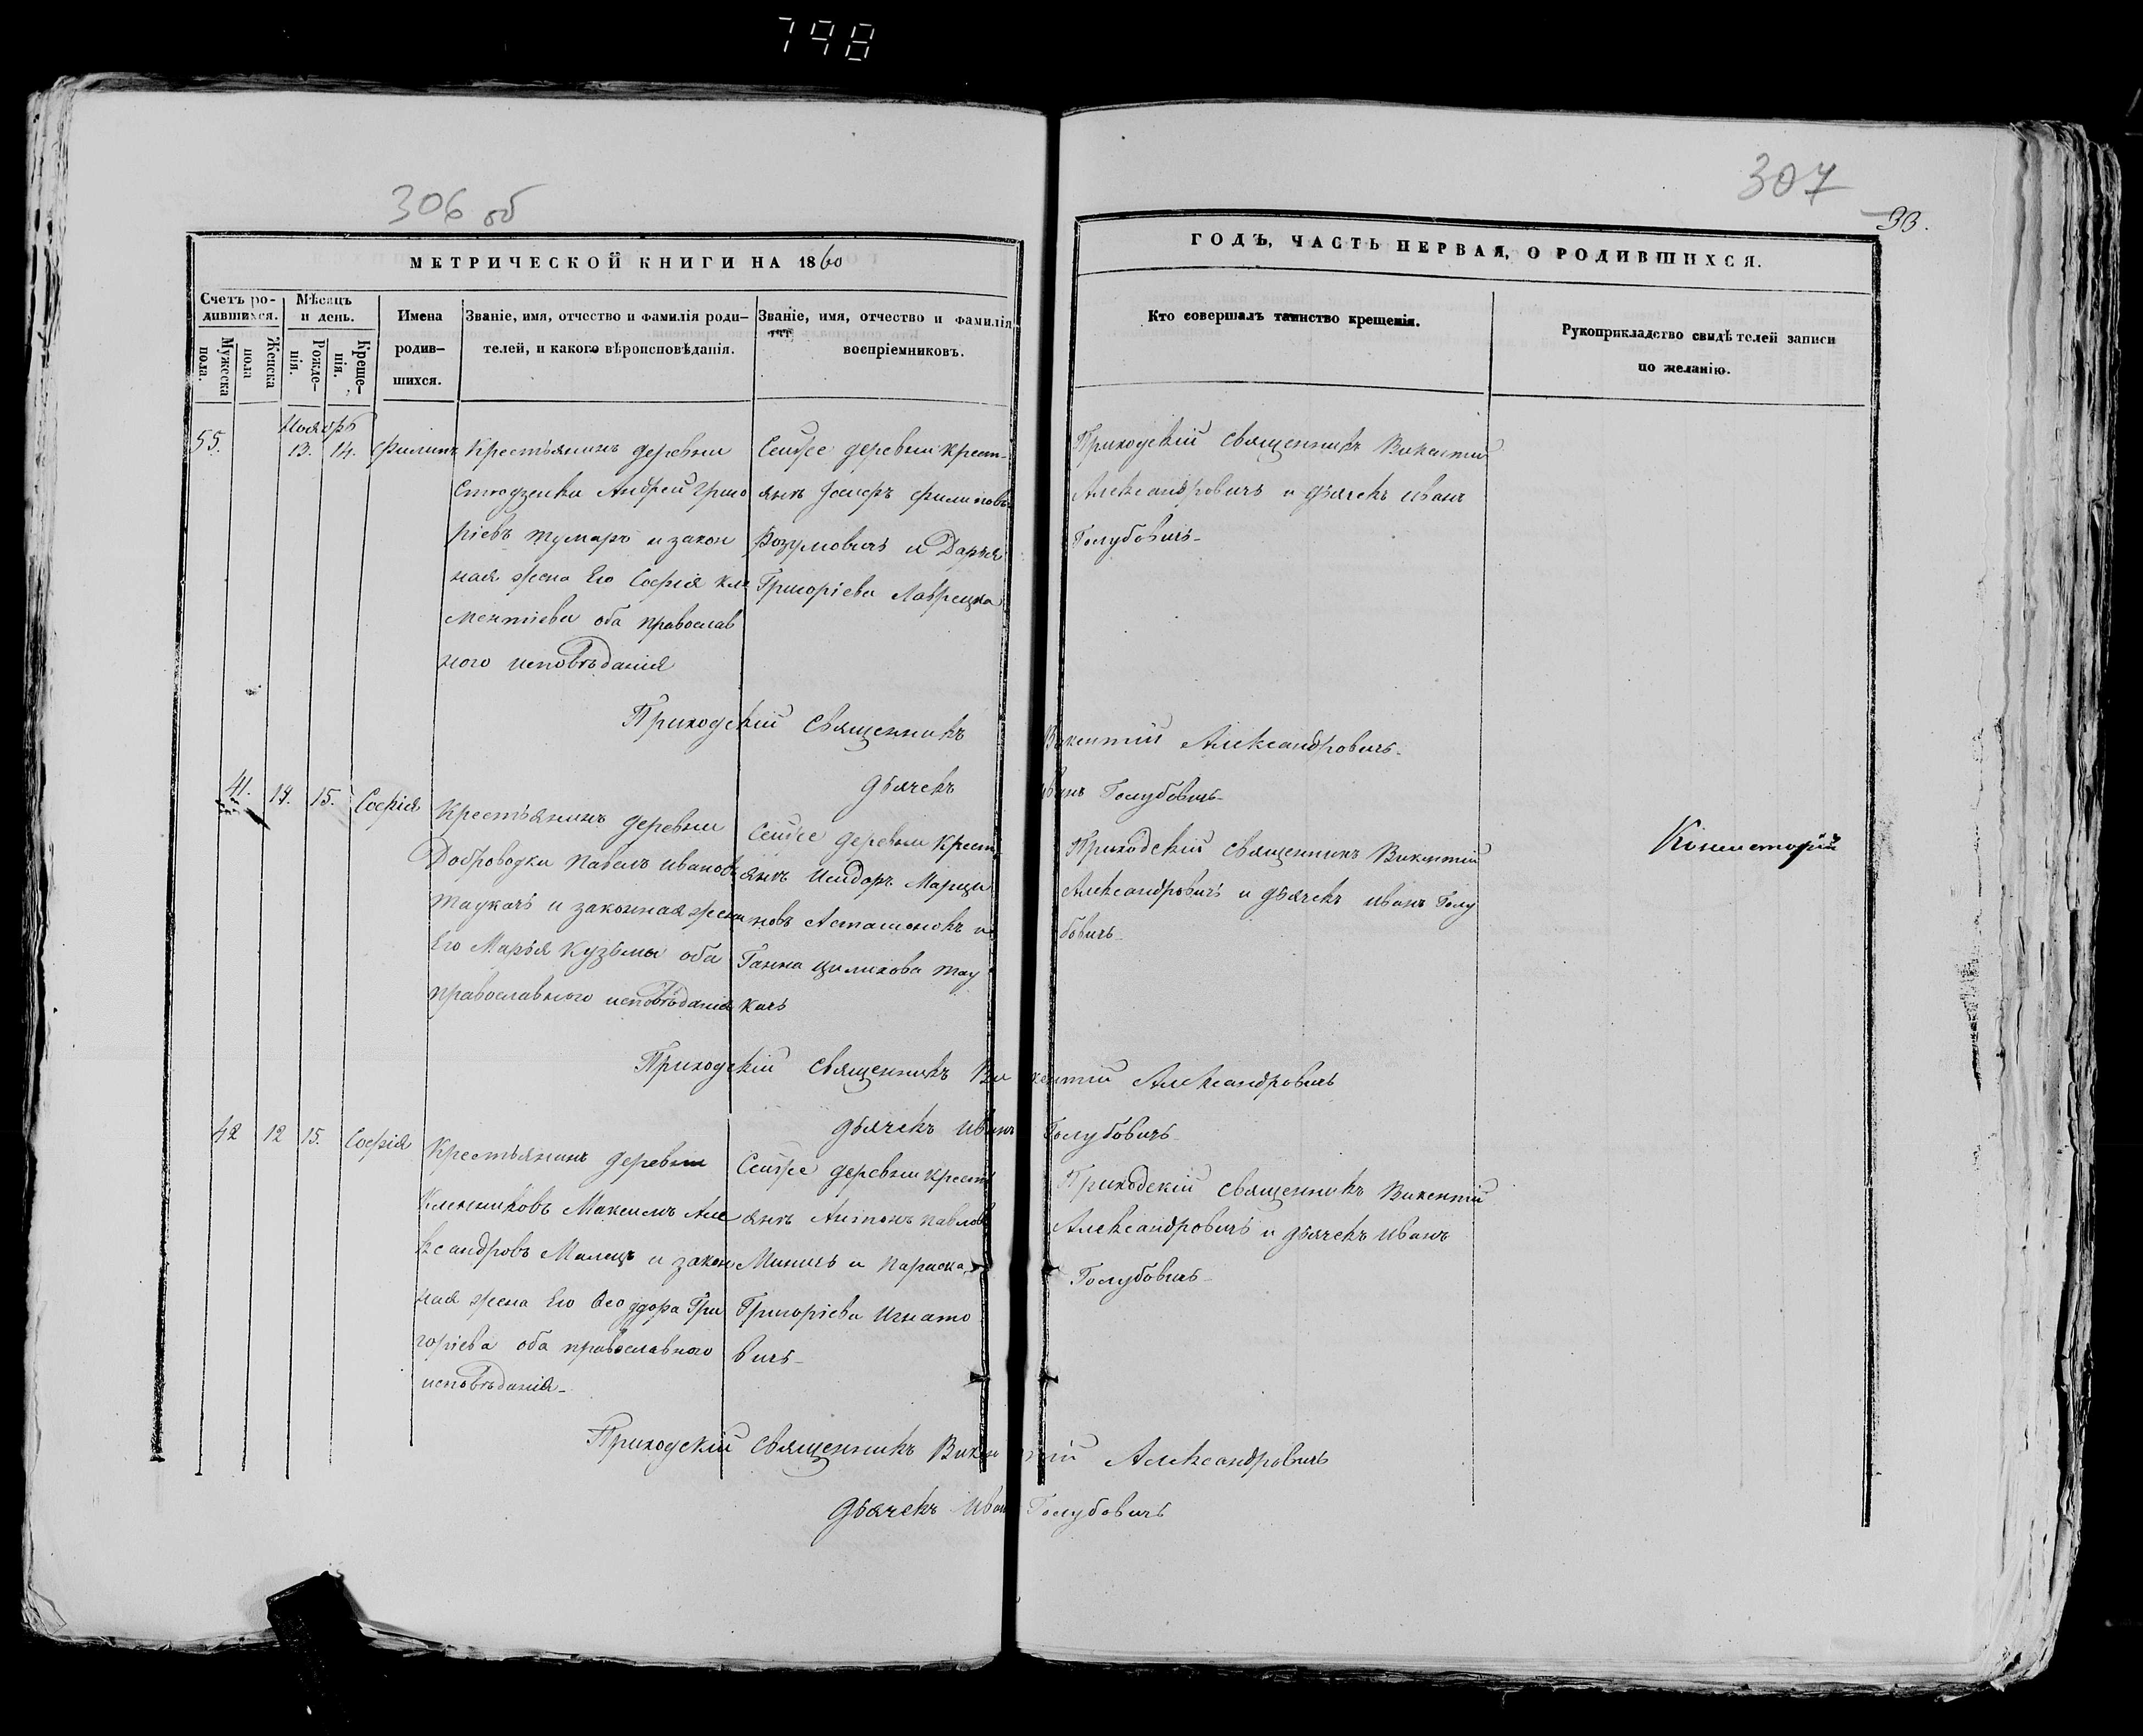 798
306 об
307
33.
МЕТРИЧЕСКОЙ КНИГИ НА 1860
ГОДЪ, ЧАСТЬ ПЕРВАЯ, О РОДИВШИХСЯ.
Счетъ ро-
дившихся.
Мужеска
пола.
Женска
пола
Мѣсяцъ
и день.
Рожде-
нія.
Креще-
нія.
Имена
родив-
шихся.
Званіе, имя, отчество и фамилія роди-
телей, и какого вѣроисповѣданія.
Званіе, имя, отчество и фамилія
воспріемниковъ.
Кто совершалъ таинство крещенія.
Рукоприкладство свидѣтелей записи
по желанію.
Ноябрь
55. 13. 14. Филипъ
Крестьянинъ деревни
Андрей Григо
ріевъ Тумаръ и закон
ная жена Его Софія Кли
ментіева оба православ
ного исповѣданія
Сейже деревни крест-
янъ Іосифъ Филиповъ
Розумовичъ и Дарья
Григоріева Лаврецка
Приходскій священникъ Викентій
Александровичъ и дьячекъ Иванъ
Голубовичъ
Приходскій Священникъ Викентій Александровичъ
дьячекъ Иванъ Голубовичъ
41. 14. 15. Софія
Крестьянинъ деревни
Доброводки Павелъ Ивановъ
Ткукачъ и законная жена
Его Марья Кузьмы оба
православного исповѣданія
Сейже деревни Крест
янъ Исидоръ Марци
новъ Асташонокъ и
Ганна Цимихова Тку
качъ
Приходскій священникъ Викентій
Александровичъ и дьячекъ Иванъ Голу
бовичъ
Консисторій
Приходскій священникъ Викентій Александровичъ
дьячекъ Иванъ Голубовичъ
42 12 15. Софія
Крестьянинъ деревни
Максимъ Але
ксандровъ Малецъ и закон
ная жена Его Феодора Гри
горіева оба православного
исповѣданія
Сейже деревни крест
янъ Антонъ Павловъ
Миничъ и Параска
Григоріева Игнато
вичъ
Приходскій священникъ Викентій
Александровичъ и дьячекъ Иванъ
Голубовичъ
Приходскій священникъ Викентій Александровичъ
дьячекъ Иванъ Голубовичъ